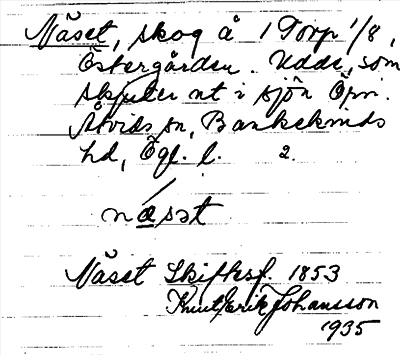 Näset, skog å 1 Torp 1/8,
Östergården. Udde, som
skjuter ut i sjön Öjn.
Åtvids sn, Bankekinds
hd, Ögl. l. 2.
næsət
Näset Skifteskf. 1853
Knut Erik Johansson
1935